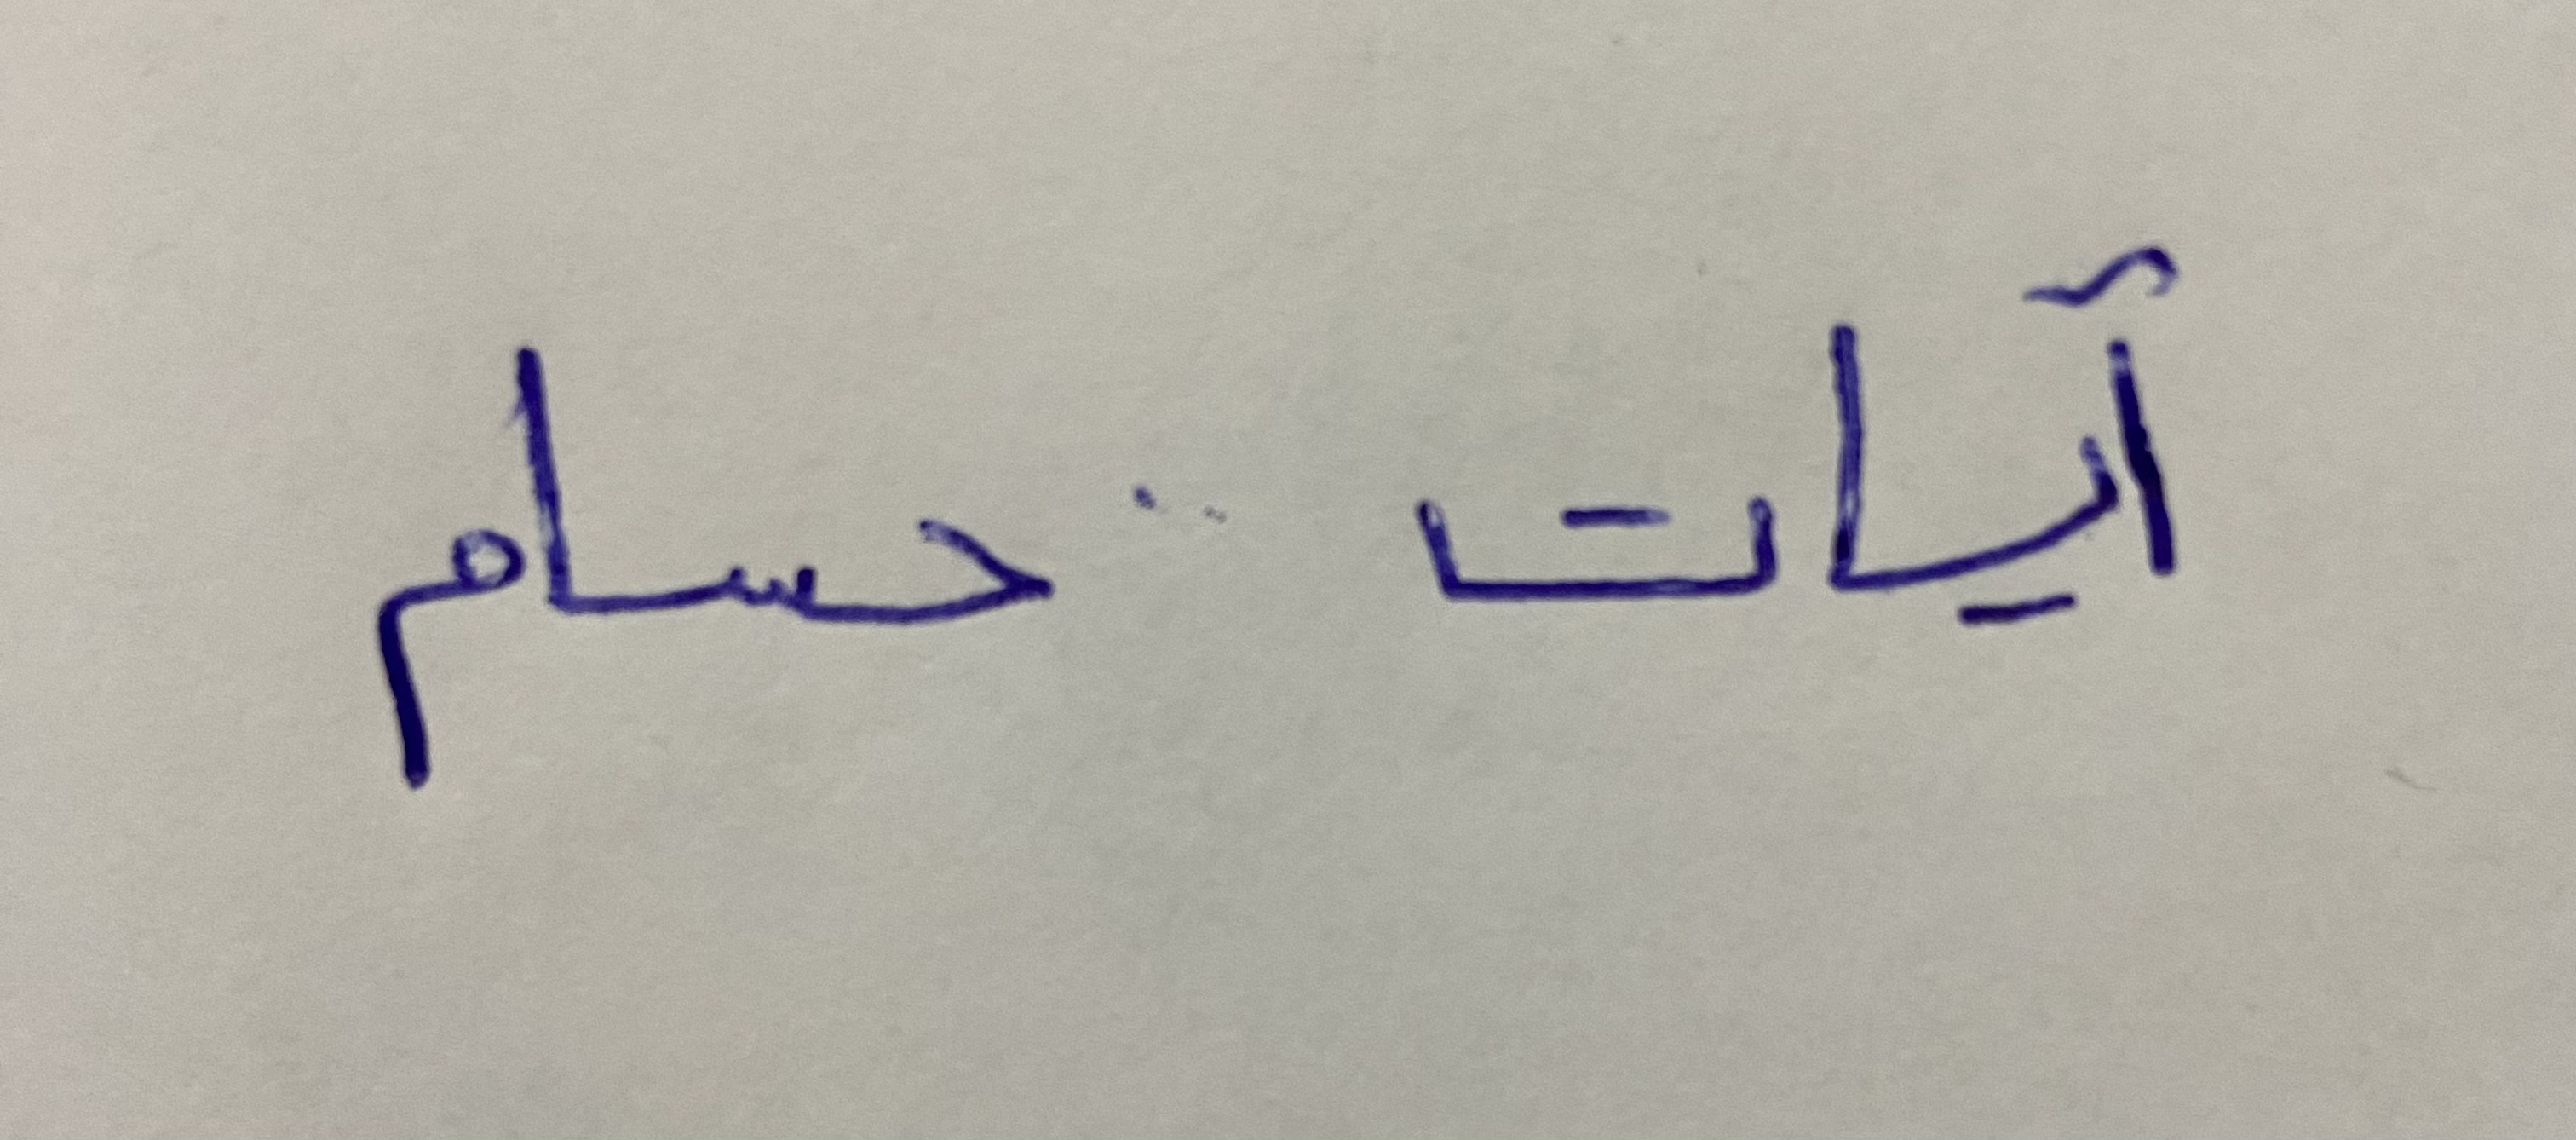 آيات حسام